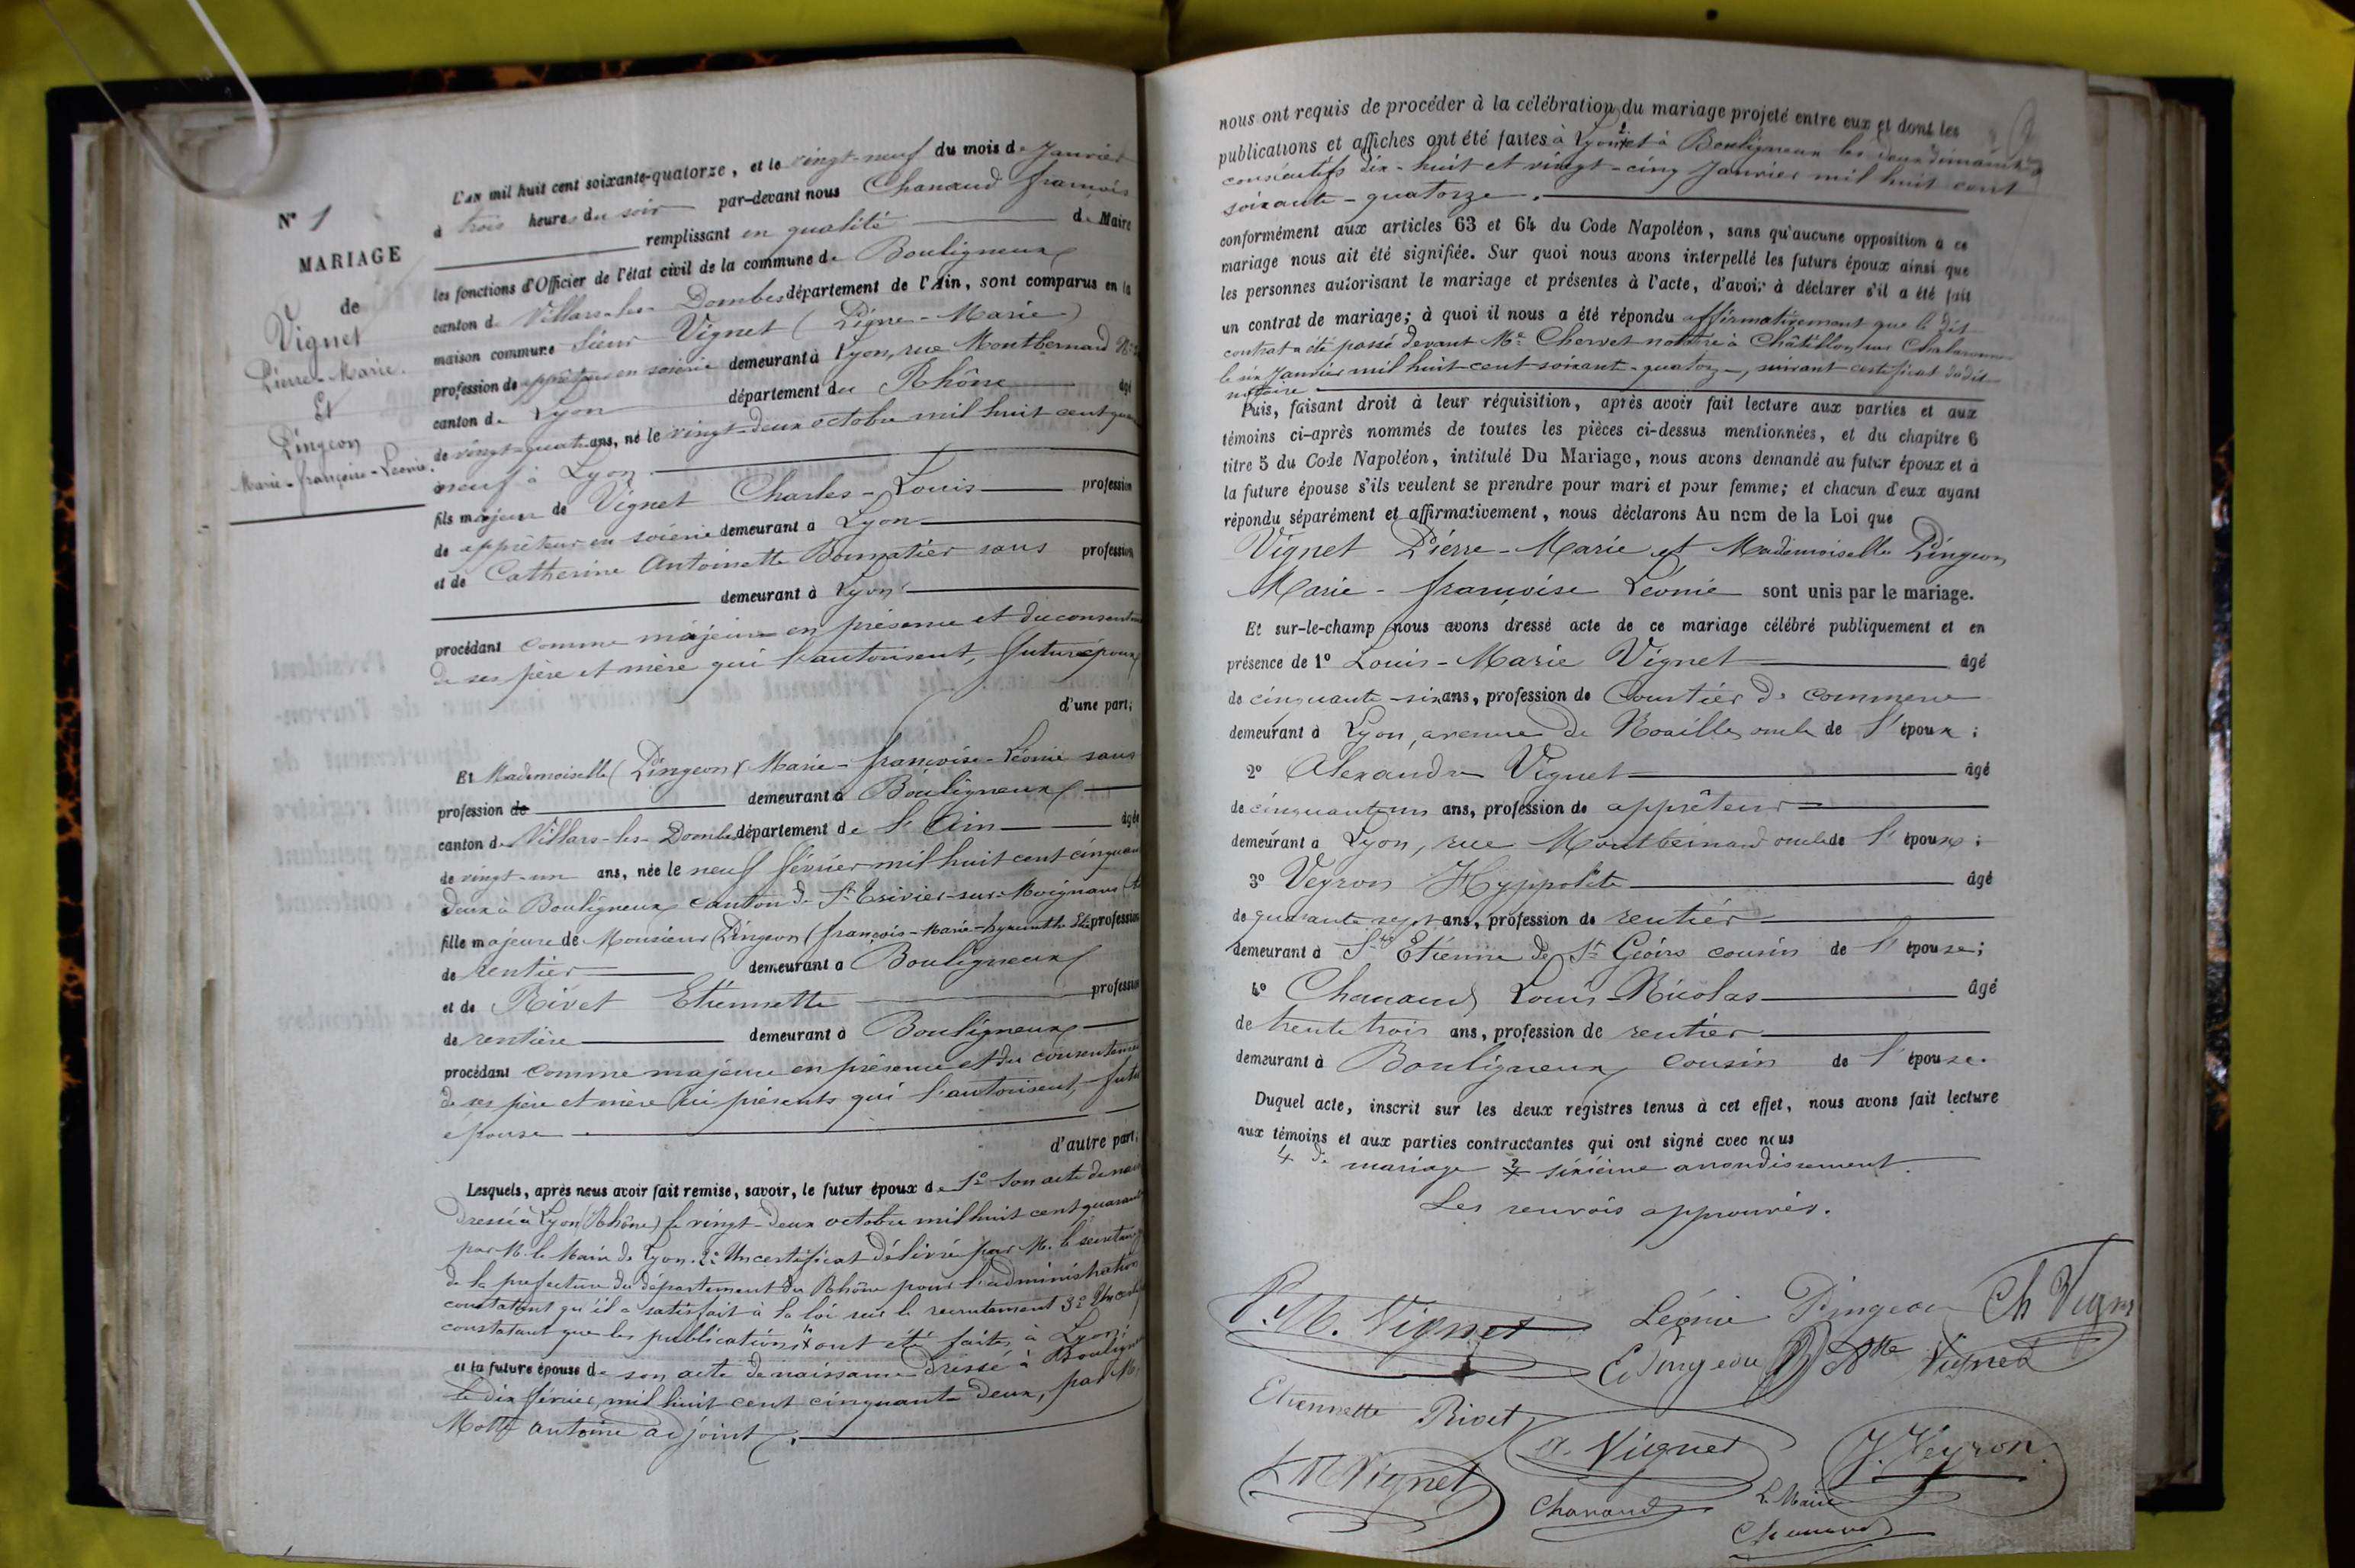 N° 1
MARIAGE
de
Vignet
Pierre-Marie.
Et
Pingeon
Marie-françoise-Leonie.
L'AN mil huit cent soixante-quatorze, et le vingt-neuf du mois de Janvier
à trois heures du soir par-devant nous Chanaud françois
remplissant en qualité de Maire
les fonctions d'Officier de l'état civil de la commune de Bouligneux
canton de Villars-les-Dombes département de l'Ain, sont comparus en la
maison commune Sieur Vignet (Pierre-Marie)
profession de apprêteur en soierie demeurant à Lyon, rue Montbernard N°
canton de Lyon département du Rhône âgé
de vingt-quatre ans, né le vingt-deux octobre mil huit cent quarante
neuf à Lyon.
fils majeur de Vignet Charles-Louis profession
de apprêteur en soierie demeurant à Lyon
et de Catherine Antoinette Bonnatier sans profession
demeurant à Lyon
procédant comme majeur en présence et du consentement
de ses père et mère qui l'autorisent, futur époux
d'une part;
Et Mademoiselle (Pingeon) Marie-françoise-Léonie sans
profession de demeurant à Bouligneux
canton de Villars-les-Dombes département de l'Ain âgée
de vingt-un ans, née le neuf février mil huit cent cinquante
deux à Bouligneux canton de St Trivier-sur-Moignans
fille majeure de Monsieur Pingeon (françois-Marie-hyacinthe profession
de rentier demeurant à Bouligneux
et de Rivet Etiennette profession
de rentière demeurant à Bouligneux
procédant comme majeure en présence et du consentement
de ses père et mère ici présents qui l'autorisent, future
épouse
d'autre part;
Lesquels, après nous avoir fait remise, savoir, le futur époux de 1° son acte de nais
dressé à Lyon (Rhône) le vingt-deux octobre mil huit cent quarante
par M. le Maire de Lyon. 2° Un certificat délivré par M. le secrétaire
de la prefecture du département du Rhône pour l'administration
constatant qu'il a satisfait à la loi sur le recrutement 3° Un certif
constatant que les publications ont été faites à Lyon;
et la future épouse de son acte de naissance dressé à Bouligneux
le dix février, mil huit cent cinquante deux, par Mr
Motte antoine adjoint.
nous ont requis de procéder à la célébration du mariage projeté entre eux et dont les
publications et affiches ont été faites à Lyon et à Bouligneux les deux dimanches
consécutifs dix-huit et vingt-cinq Janvier mil huit cent
soixante-quatorze.
conformément aux articles 63 et 64 du Code Napoléon, sans qu'aucune opposition à ce
mariage nous ait été signifiée. Sur quoi nous avons interpellé les futurs époux ainsi que
les personnes autorisant le mariage et présentes à l'acte, d'avoir à déclarer s'il a été fait
un contrat de mariage; à quoi il nous a été répondu affirmativement que le dit
contrat a été passé devant Me Chervet notaire à Châtillon sur Chalaronne
le six Janvier mil huit cent soixante-quatorze, suivant certificat dudit
notaire
Puis, faisant droit à leur réquisition, après avoir fait lecture aux parties et aux
témoins ci-après nommés de toutes les pièces ci-dessus mentionnées, et du chapitre 6
titre 5 du Code Napoléon, intitulé DU MARIAGE, nous avons demandé au futur époux et à
la future épouse s'ils veulent se prendre pour mari et pour femme; et chacun d'eux ayant
répondu séparément et affirmativement, nous déclarons AU NOM DE LA LOI que
Vignet Pierre-Marie et Mademoiselle Pingeon
Marie-françoise Léonie sont unis par le mariage.
Et sur-le-champ nous avons dressé acte de ce mariage célébré publiquement et en
présence de 1° Louis-Marie Vignet âgé
de cinquante-six ans, profession de Courtier de commerce
demeurant à Lyon, avenue de Noailles oncle de l'époux;
2° Alexandre Vignet âgé
de cinquante un ans, profession de apprêteur
demeurant à Lyon, rue Montbernard oncle de l'époux;
3° Veyron Hyppolite âgé
de quarante sept ans, profession de rentier
demeurant à St Etienne de St Geoirs cousin de l'épouse;
4° Chanaud Louis-Nicolas âgé
de trente trois ans, profession de rentier
demeurant à Bouligneux cousin de l'épouse.
Duquel acte, inscrit sur les deux registres tenus à cet effet, nous avons fait lecture
aux témoins et aux parties contractantes qui ont signé avec nous
de mariage 2 sixième arrondissement.
Les renvois approuvés.
P.M. Vignet Léonie Pingeon Ch Vignet
Pingeon Vignet
Etiennette Rivet
a. Vignet J. Veyron.
L M Vignet
Chanaud Le Maire
Chanaud